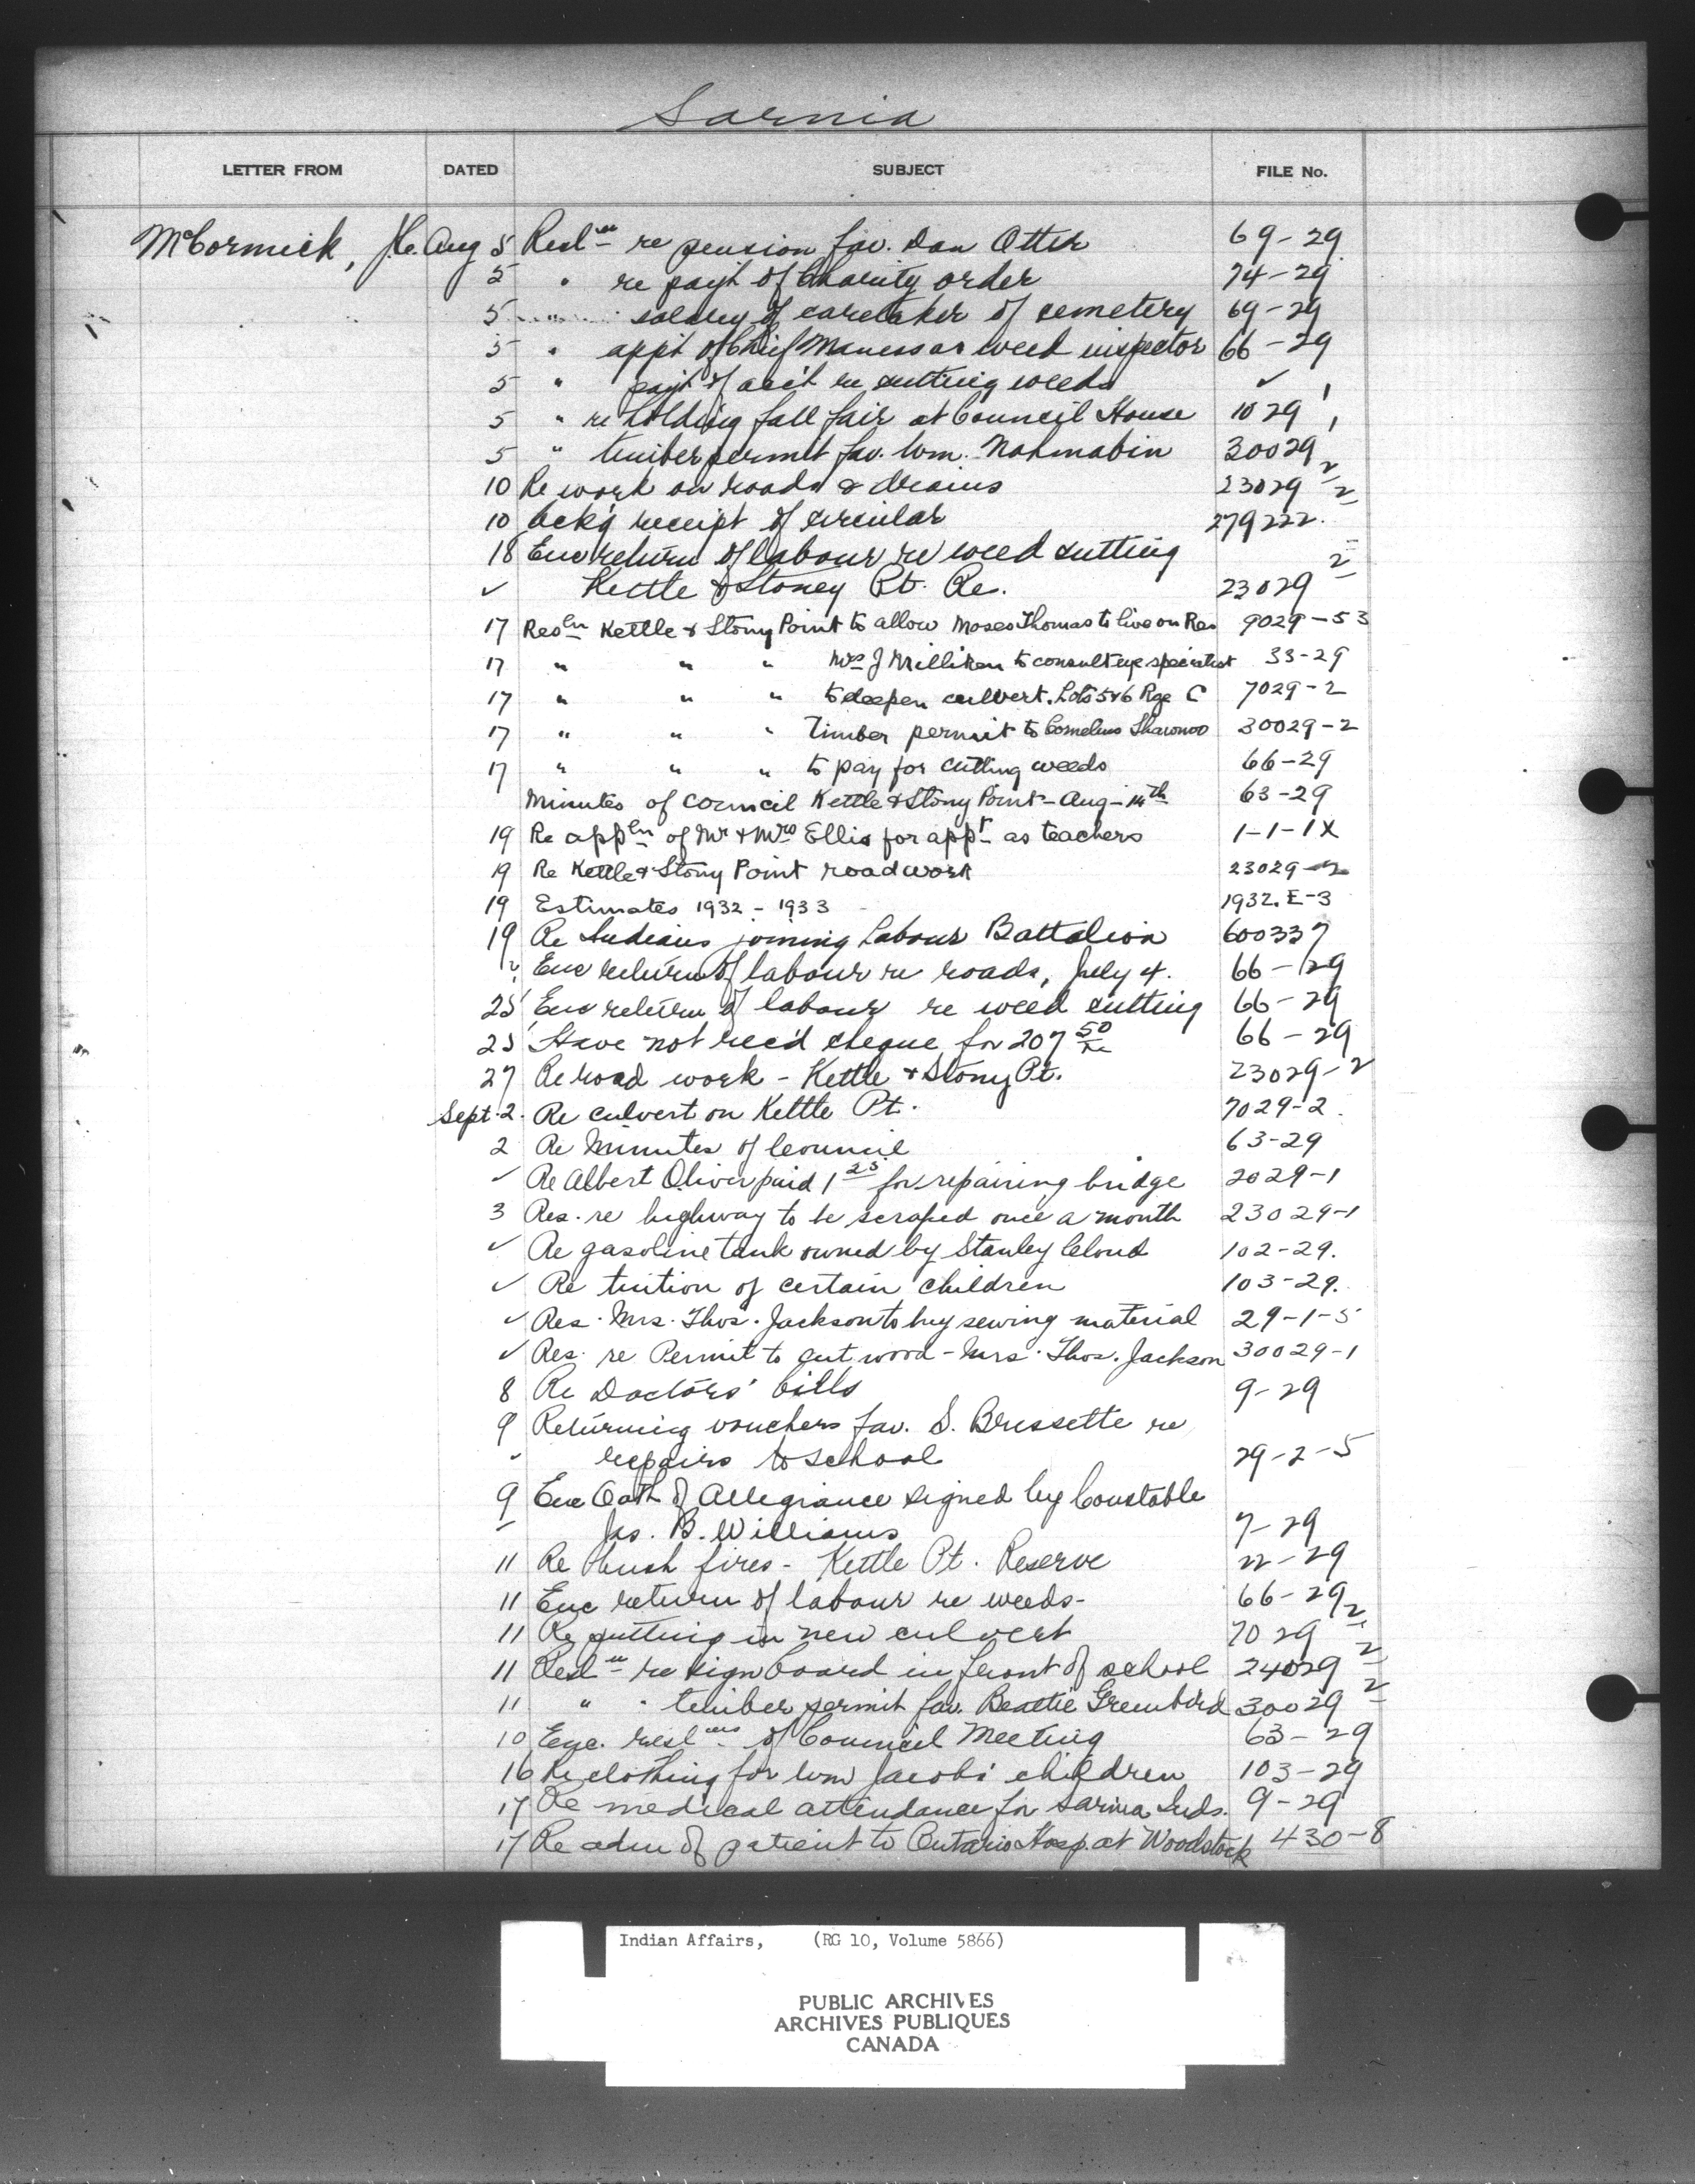 Sarnia
LETTER FROM DATED SUBJECT FILE No.
McCormick, J.C. Aug 5 Resl<sup>n</sup> re pension fav. Dan Otter 69-29
5 " re pay't of Charity order 74-29
5 " salary of caretaker of cemetery 69-29
5 " appt of Chief Maness as weed inspector 66-29
5 " pay't of acc't re cutting weeds ✓
5 " re holding fall fair at Council House 1029-1
5 " timber permit fav. Wm. Nahmabin 30029-1
10 Re work on roads & drains 23029-2
10 Ack'g receipt of circular 279222-2
18 Enc return of labour re weed cutting
✓ Kettle & Stoney Pt. Re. 23029-2
17 Resln Kettle & Stony Point to allow Moses Thomas to live on Res 9029-53
17 " " " Mrs J Milliken to consult eye specialist 33-29
17 " " " to deepen culvert. Lots 5&6 Rge C 7029-2
17 " " " Timber permit to Cornelius Shawnoo 30029-2
17 " " " to pay for cutting weeds 66-29
Minutes of Council Kettle & Stony Point - Aug - 14th 63-29
19 Re appln of Mr & Mrs Ellis for appt as teachers 1-1-1X
19 Re Kettle & Stony Point roadwork 23029-2
19 Estimates 1932 - 1933 1932.E-3
19 Re Indians joining Labour Battalion 600337
Enc return of labour re roads, July 4. 66-29
25 Enc return of labour re weed cutting 66-29
25 Have not rec'd cheque for 207 50 66-29
27 Re road work - Kettle & Stony Pt. 23029-2
Sept. 2. Re culvert on Kettle Pt. 7029-2.
2 Re Minutes of Council 63-29
✓ Re Albert Oliver paid 1 25 for repairing bridge 2029-1
3 Res. re highway to be scraped once a month 23029-1
✓ Re gasoline tank owned by Stanley Cloud 102-29.
✓ Re tuition of certain children 103-29.
✓ Res. Mrs. Thos. Jackson to buy sewing material 29-1-5
✓ Res. re Permit to cut wood - Mrs. Thos. Jackson 30029-1
8 Re Doctors' bills 9-29
9 Returning vouchers fav. S. Bressette re
repairs to school 29-2-5
9 Enc Oath of Allegiance signed by Constable
Jas. B. Williams 7-29
11 Re bush fires - Kettle Pt. Reserve 22-29
11 Enc return of labour re weeds- 66-29
11 Re putting in new culvert 7029-2
11 Resl<sup>n</sup> re sign board in front of school 24029-2
11 " " timber permit fav. Beattie Greenbird 30029-2
10 Enc. reslns of Council Meeting 63-29
16 Re clothing for Wm Jacobs' children 103-29
17 Re medical attendance for Sarnia Inds. 9-29
17 Re adm of patient to Ontario Hosp. at Woodstock 430-8
Indian Affairs, (RG 10, Volume 5866)
PUBLIC ARCHIVES
ARCHIVES PUBLIQUES
CANADA